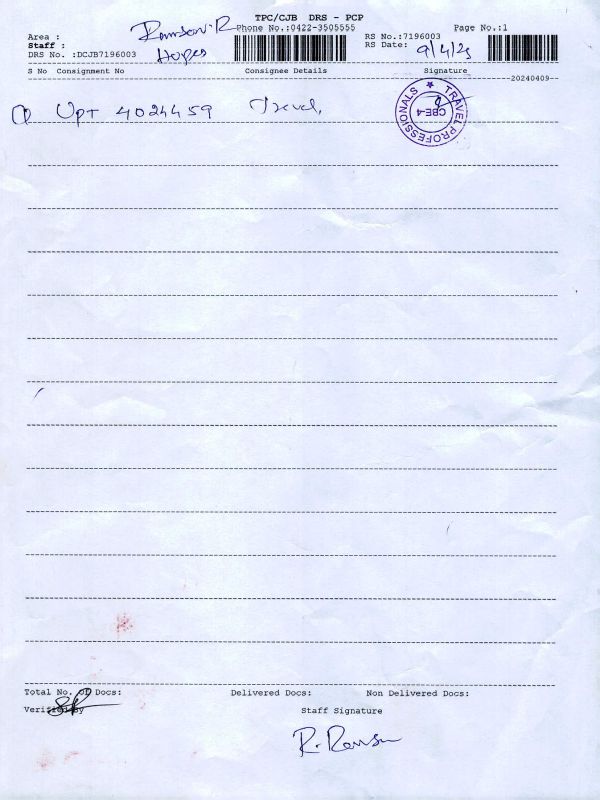 TPC/CJB DRS - PCP
Phone No.:0422-3505555
Page No.:1
Area : Ramson.R
Staff : Hopes
RS No.:7196003
RS Date: 9/4/25
DRS No. :DCJB7196003
S No Consignment No Consignee Details Signature
20240409
① Upt 4024459 Travel,
TRAVEL PROFESSIONALS ★
CBE-4
Total No. of Docs: Delivered Docs: Non Delivered Docs:
Verified by Staff Signature